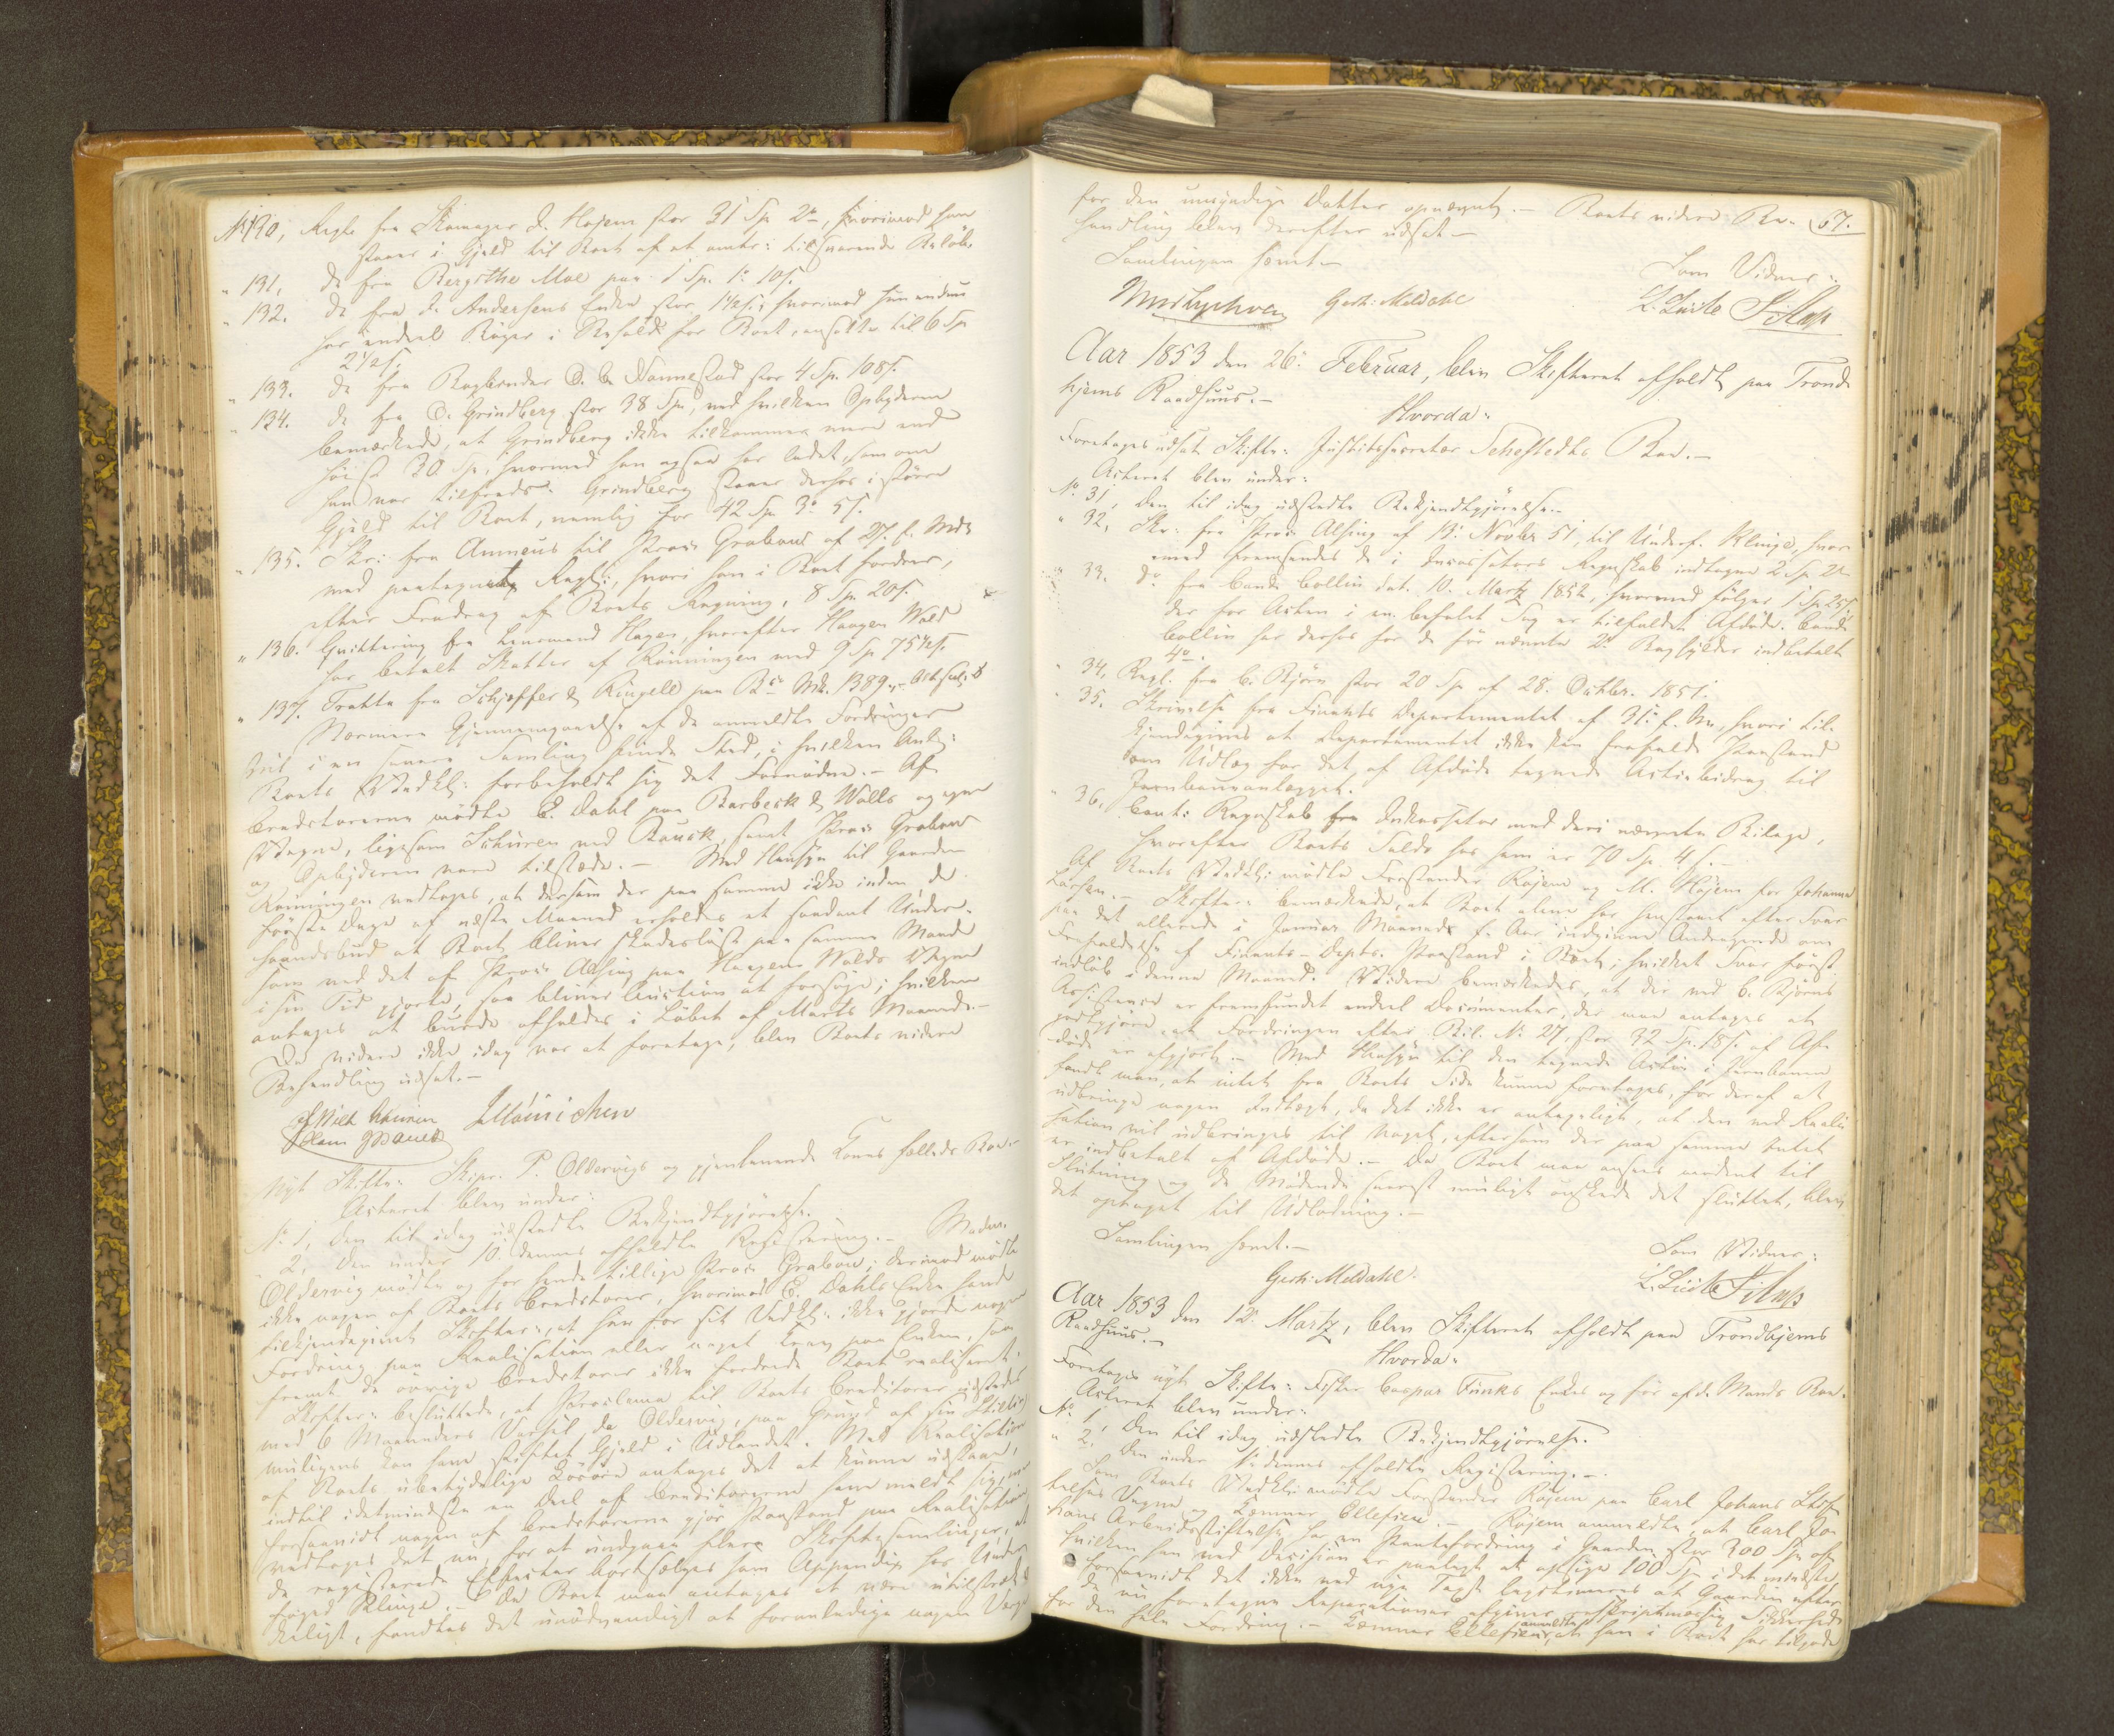 No 130, Regl. fra Skomager J. Hojem stor 31 Sp 2 , hvorimod han
staaer i Gjeld til Boet af et omtr: tilsvarende Beløb.
" 131, do fra Bergithe Moe paa 1 Sp. 1 10 s.
" 132. do fra J. Andersens Enke stor , hvorimod hun endnu
har endeel Bøger i Behold for Boet, ansatte til 6 Sp
2 1/2 s.
" 133. do fra Bogbinder C. C. Wannestad stor 4 Sp. 108 s.
" 134. do fra C. Grindberg stor 38 Sp, ved hvilken Opbyderen
bemærkede, at Grindberg ikke tilkommer mere end
høist 30 Sp, hvormed han ogsaa har ladet, som om
han var tilfreds. Grindberg staaer derhos i større
Gjeld til Boet, nemlig for 42 Sp 3 5 s.
" 135. Skr: fra Amneus til Proc: Grabow af 27. f. Mds
med paategnet Regl:, hvori han i Boet fordrer,
efter Fradrag af Boets Regning, 8 Sp. 20 s.
" 136. Qvittering fra Lensmand Hagen, hvorefter Haagen Wold
har betalt Skatter af Rønningen med 9 Sp 75 1/2 s.
" 137. Tratte fra Schjøffer & Ringell paa Bco Mk. 1389
Nærmere Gjennemgaaelse af de anmeldte Fordringer
vil i en senere Samling finde Sted, i hvilken Anl:
Boets Vedkl: forbeholdt sig det Fornødne. - Af
Creditorerne mødte E. Dahl paa Barbeck & Wolls og egne
Vegne, ligesom Schüren med Bauck, samt Proc: Grabow
og Opbyderen vare tilstede. - Med Hensyn til Gaarden
Rønningen vedtoges, at dersom der paa samme ikke inden de
første Dage af næste Maaned erholdes et saadant Under-
haandsbud at Boet bliver skadesløst paa samme Maade
som ved det af Proc: Alsing paa Haagen Wolds Vegne
i sin Tid gjorte, saa bliver Auction at forsøge; hvilken
antages at burde afholdes i Løbet af Marts Maaned. -
Da videre ikke idag var at foretage, blev Boets videre
Behandling udsat. -
Nyt Skifte: Skipr. P. Oldervigs og gjenlevende Kones fælleds Boe.
Acteret blev under:
No 1, den til idag udstedte Bekjendtgjørelse.
" 2, den under 10. dennes afholdte Registrering. - Madm.
Oldervig mødte og for hende tillige Proc: Grabow; derimod mødte
ikke nogen af Boets Creditorer, hvorimod E. Dahls Enke havde
tilkjendegivet Skifter:, at hun for sit Vedkl: ikke gjorde nogen
Fordring paa Realisation eller noget Krav paa Enken, saa
fremt de øvrige Creditorer ikke fordrede Boet realiseret.
Skifter: besluttede, at Proclama til Boets Creditorer udstedes
med 6 Maaneders Varsel, da Oldervig, paa Grund af sin Stilling
muligens kan have stiftet Gjeld i Udlandet. Med Realisation
af Boets ubetydelige Løsøre antages det at kunne udstaae,
indtil idetmindste en Deel af Creditorerne have meldt sig, men
forsaavidt nogen af Creditorerne gjør Paastand paa Realisation
vedtages det nu, for at undgaae flere Skiftesamlinger, at
de registrerede Effecter bortsælges som Appendix hos Under-
foged Klinge. - Da Boet maa antages at være utilstræk-
keligt, fandtes det unødvendigt at foranledige nogen Verge
for den umyndige Datter opnævnt. - Boets videre Be-
67.
handling blev derefter udsat -
Samlingen hævet -
Gerh: Meldahl
Som Vidner:
Aar 1853 den 26: Februar, blev Skifteret afholdt paa Trond
hjems Raadhuus. -
Hvorda:
Foretages udsat Skifte: Justitssecretær Schestedts Boe. -
Acteret blev under:
No 31, den til idag udstedte Bekjendtgjørelse. -
" 32, Skr: fra Proc: Alsing af 13: Novbr 51, til Underf. Klinge, hvor
med fremsendes de i Incassators Regnskab indtagne 2 Sp
" 33. do fra Cand: Collin dat. 10. Martz 1852, hvormed følger 1 Sp 25 s.
der for Acten i en befalet Sag er tilfaldet Afdøde. Cand:
Collin har derhos for de før nævnte Bogfjelder indbetalt
" 34, Regl. fra C. Bjørn stor 20 Sp af 28. Octbr. 1851.
" 35. Skrivelse fra Finants Departementet af 31: f. M., hvori til-
kjendegives at Departementet ikke kan frafalde Paastand
om Udlæg for det af Afdøde tegnede Actiebidrag til
Jernbaneanlægget.
" 36. Cont: Regnskab fra Inkassator med deri nævnte Bilage,
hvorefter Boets Saldo hos ham er 70 Sp. 4 s. -
Af Boets Vedkl: mødte Forstander Røjem og M. Hojem for Johanna
Larsen. - Skifter: bemærkede, at Boet alene har henstaaet efter Svar
paa det allerede i Januar Maaned f. Aar indgivne Andragende om
Frafaldelse af Finants-Depts. Paastand i Boet; hvilket Svar først
indløb i denne Maaned. Videre bemærkedes, at der ved C. Bjørns
Assistence er fremfundet endeel Documenter, der maa antages at
godtgjøre at Fordringen efter Bil. No 27. stor 32 Sp. 18 s. af Af-
døde er afgjort. - Med Hensyn til den tegnede Actie i Jernbanen
fandt man, at intet fra Boets Side kunne foretages, for deraf at
udbringe nogen Indtægt, da det ikke er antageligt, at den ved Reali
sation vil udbringes til Noget, eftersom der paa samme Intet
er indbetalt af Afdøde. - Da Boet maa ansees modent til
Slutning og de Mødende snarest muligt ønskede det sluttet, blev
det optaget til Udlodning. -
Samlingen hævet. -
Gerh: Meldahl.
Som Vidner:
Aar 1853 den 12: Martz, blev Skifteret afholdt paa Trondhjems
Raadhuus. -
Hvorda:
Foretages nyt Skifte: Fisker Caspar Funks Enkes og før afd. Mands Boe.
Acteret blev under:
No 1, Den til idag udstedte Bekjendtgjørelse.
" 2, Den under dennes afholdte Registrering. -
Som Boets Vedkl: mødte Forstander Røjem paa Carl Johans Stif-
telses Vegne og Kæmner Ellefsen. - Røjem anmeldte, at Carl Jo-
hans Arbeidsstiftelse har en Pantefordring i Gaarden stor 300 Sp. af
hvilken han ved Decision er paalagt at opsige 100 Sp idet mindste
forsaavidt det ikke ved nye Taxt legitimeres at Gaarden efter
de nu foretagne Reparationer afgiver reskriptmæssig Sikkerhed
for den hele Fordring. - Kæmner Ellefsen anmeldte, at han i Boet har tilgode